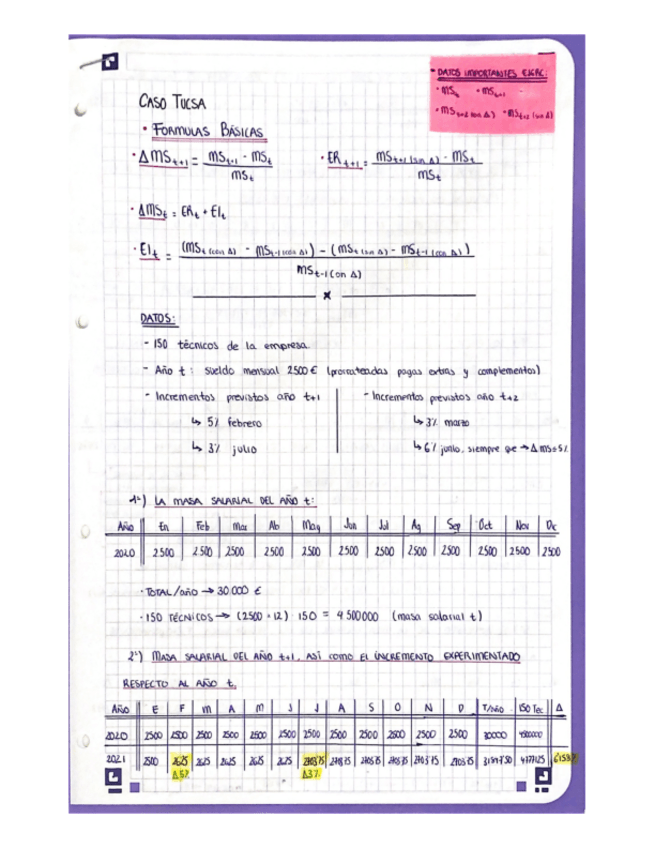 • DATOS IMPORTANTES EJERC:
• MSt • MSt+1
• MSt+2 (con Δ) • MSt+2 (sin Δ)
CASO TUCSA
• FORMULAS BÁSICAS
• ΔMSt+1 = MSt+1 - MSt / MSt
• ERt+1 = MSt+1 (sin Δ) - MSt / MSt
• ΔMSt = ERt + EIt
• EIt = (MSt (con Δ) - MSt-1 (con Δ)) - (MSt (sin Δ) - MSt-1 (con Δ)) / MSt-1 (con Δ)
x
DATOS:
- 150 técnicos de la empresa.
- Año t: sueldo mensual 2500 € (prorrateadas pagas extras y complementos)
- Incrementos previstos año t+1
↳ 5% febrero
↳ 3% julio
- Incrementos previstos año t+2
↳ 3% marzo
↳ 6% junio, siempre que → Δ MS=5%
1º) LA MASA SALARIAL DEL AÑO t:
Año En Feb Mar Ab May Jun Jul Ag Sep Oct Nov Dic
2020 2500 2500 2500 2500 2500 2500 2500 2500 2500 2500 2500 2500
• TOTAL/año → 30000 €
• 150 TÉCNICOS → (2500 · 12) · 150 = 4 500 000 (masa salarial t)
2º) MASA SALARIAL DEL AÑO t+1, ASÍ COMO EL INCREMENTO EXPERIMENTADO
RESPECTO AL AÑO t.
AÑO E F M A M J J A S O N D T/AÑO 150 Tec Δ
2020 2500 2500 2500 2500 2500 2500 2500 2500 2500 2500 2500 2500 30000 4500000
2021 2500 2625 2625 2625 2625 2625 2703'75 2703'75 2703'75 2703'75 2703'75 2703'75
Δ5% Δ3%